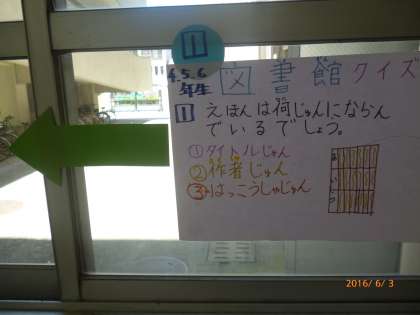 1
4.5.6
年生
図書館クイズ
1 えほんは何じゅんにならん
でいるでしょう。
①タイトルじゅん
②作者じゅん
③はっこうしゃじゅん
2016/ 6/ 3